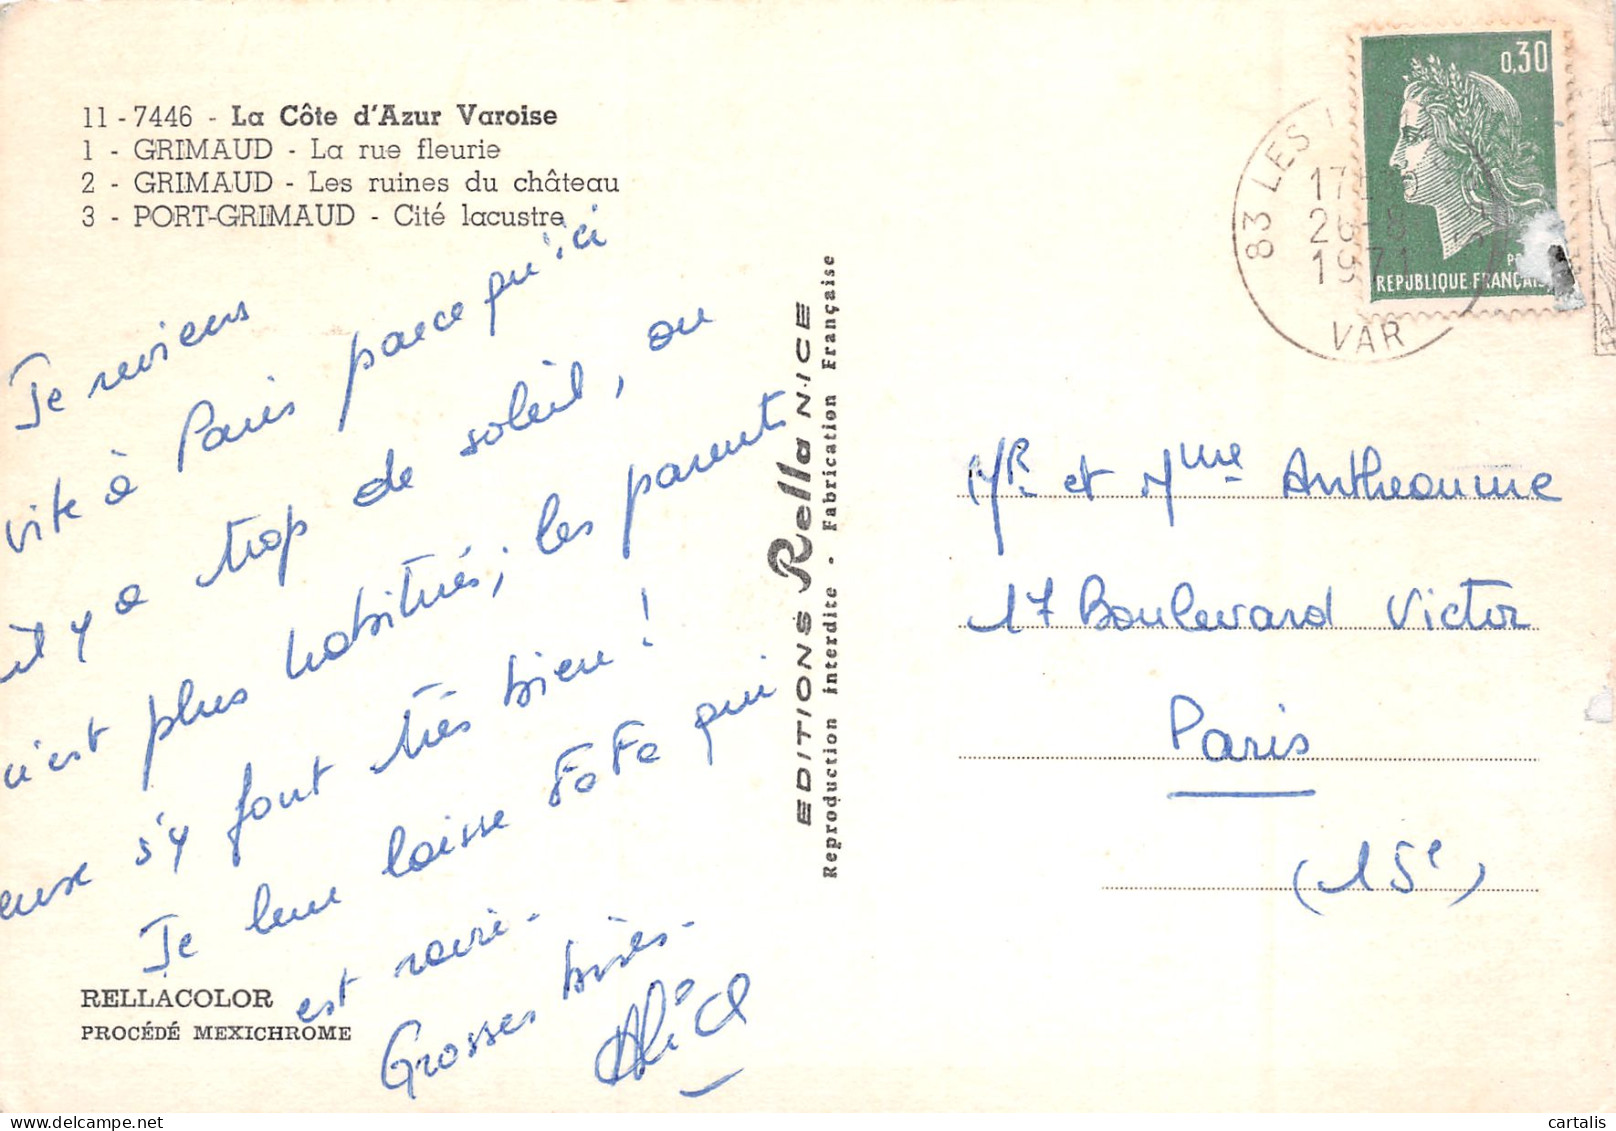 11 - 7446 - La Côte d'Azur Varoise
1 - GRIMAUD - La rue fleurie
2 - GRIMAUD - Les ruines du château
3 - PORT-GRIMAUD - Cité lacustre
Je reviens
vite à Paris parce qu'ici
il y a trop de soleil, on
n'est plus habitués ; les parents
eux s'y font très bien !
Je leur laisse Fofo qui
est ravi.
Grosses bises.
RELLACOLOR
PROCÉDÉ MEXICHROME
EDITIONS Rella NICE
Reproduction interdite - Fabrication Française
83 LES
17
26-8
1971
VAR
0,30
RÉPUBLIQUE FRANÇAIS
Mr et Mme Antheaume
17 Boulevard Victor
Paris
(15e)
cartalis